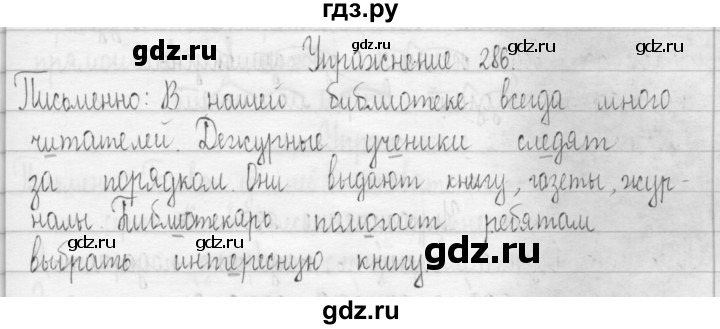 гдз.ру
gdz.ru gdz.ru gdz.ru
Упражнение 286.
Письменно: В нашей библиотеке всегда много
читателей. Дежурные ученики следят
за порядком. Они выдают книгу, газеты, жур-
налы. Библиотекарь помогает ребятам
gdz.ru gdz.ru
выбрать интересную книгу
gdz.ru
gdz.ru